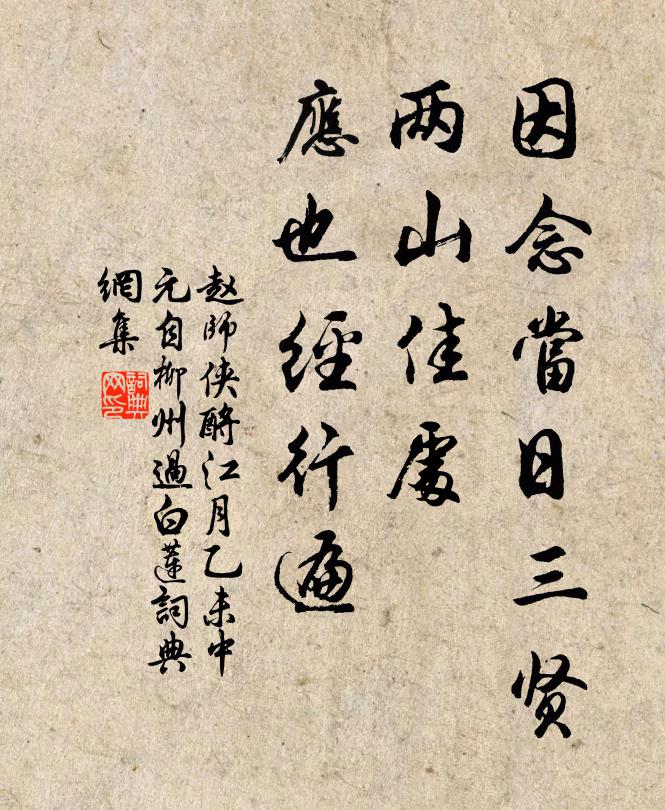 因念當日三贤
两山佳處
應也經行遍
赵師侠酹江月乙未中
元自柳州過白蓮詞典
網集
詞典
网印